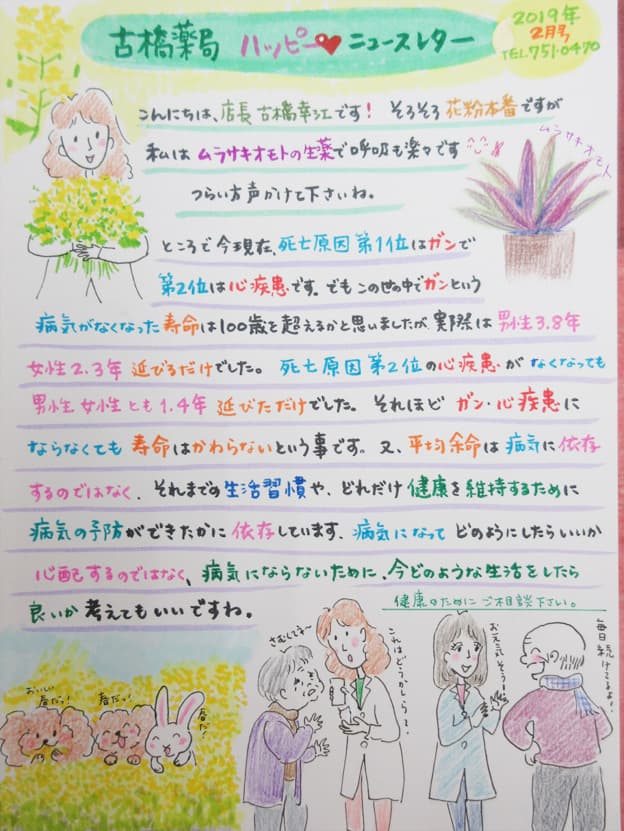 古橋薬局 ハッピー♥ニュースレター
2019年
2月号
TEL751-0470
こんにちは、店長 古橋幸江です! そろそろ 花粉本番ですが
私は ムラサキオモトの生薬で呼吸も楽々です
ムラサキオモト
つらい方声かけて下さいね。
ところで今現在、死亡原因 第1位はガンで
第2位は心疾患です。でもこの世の中でガンという
病気がなくなった寿命は100歳を超えるかと思いましたが、実際は男性3.8年
女性2.3年 延びるだけでした。死亡原因 第2位の心疾患が なくなっても
男性女性とも1.4年 延びただけでした。それほど ガン・心疾患に
ならなくても 寿命はかわらないという事です。又、平均余命は 病気に依存
するのではなく、それまでの生活習慣や、どれだけ健康を維持するために
病気の予防ができたかに依存しています、病気になって どのようにしたらいいか
心配するのではなく、病気にならないために、今どのような生活をしたら
良いか 考えてもいいですね。
健康のために ご相談下さい。
おいしい
春だっ!
春だっ!
春だ!
さむくてネー
これはどうかしら?
お元気そうね
毎日続けてるよ!